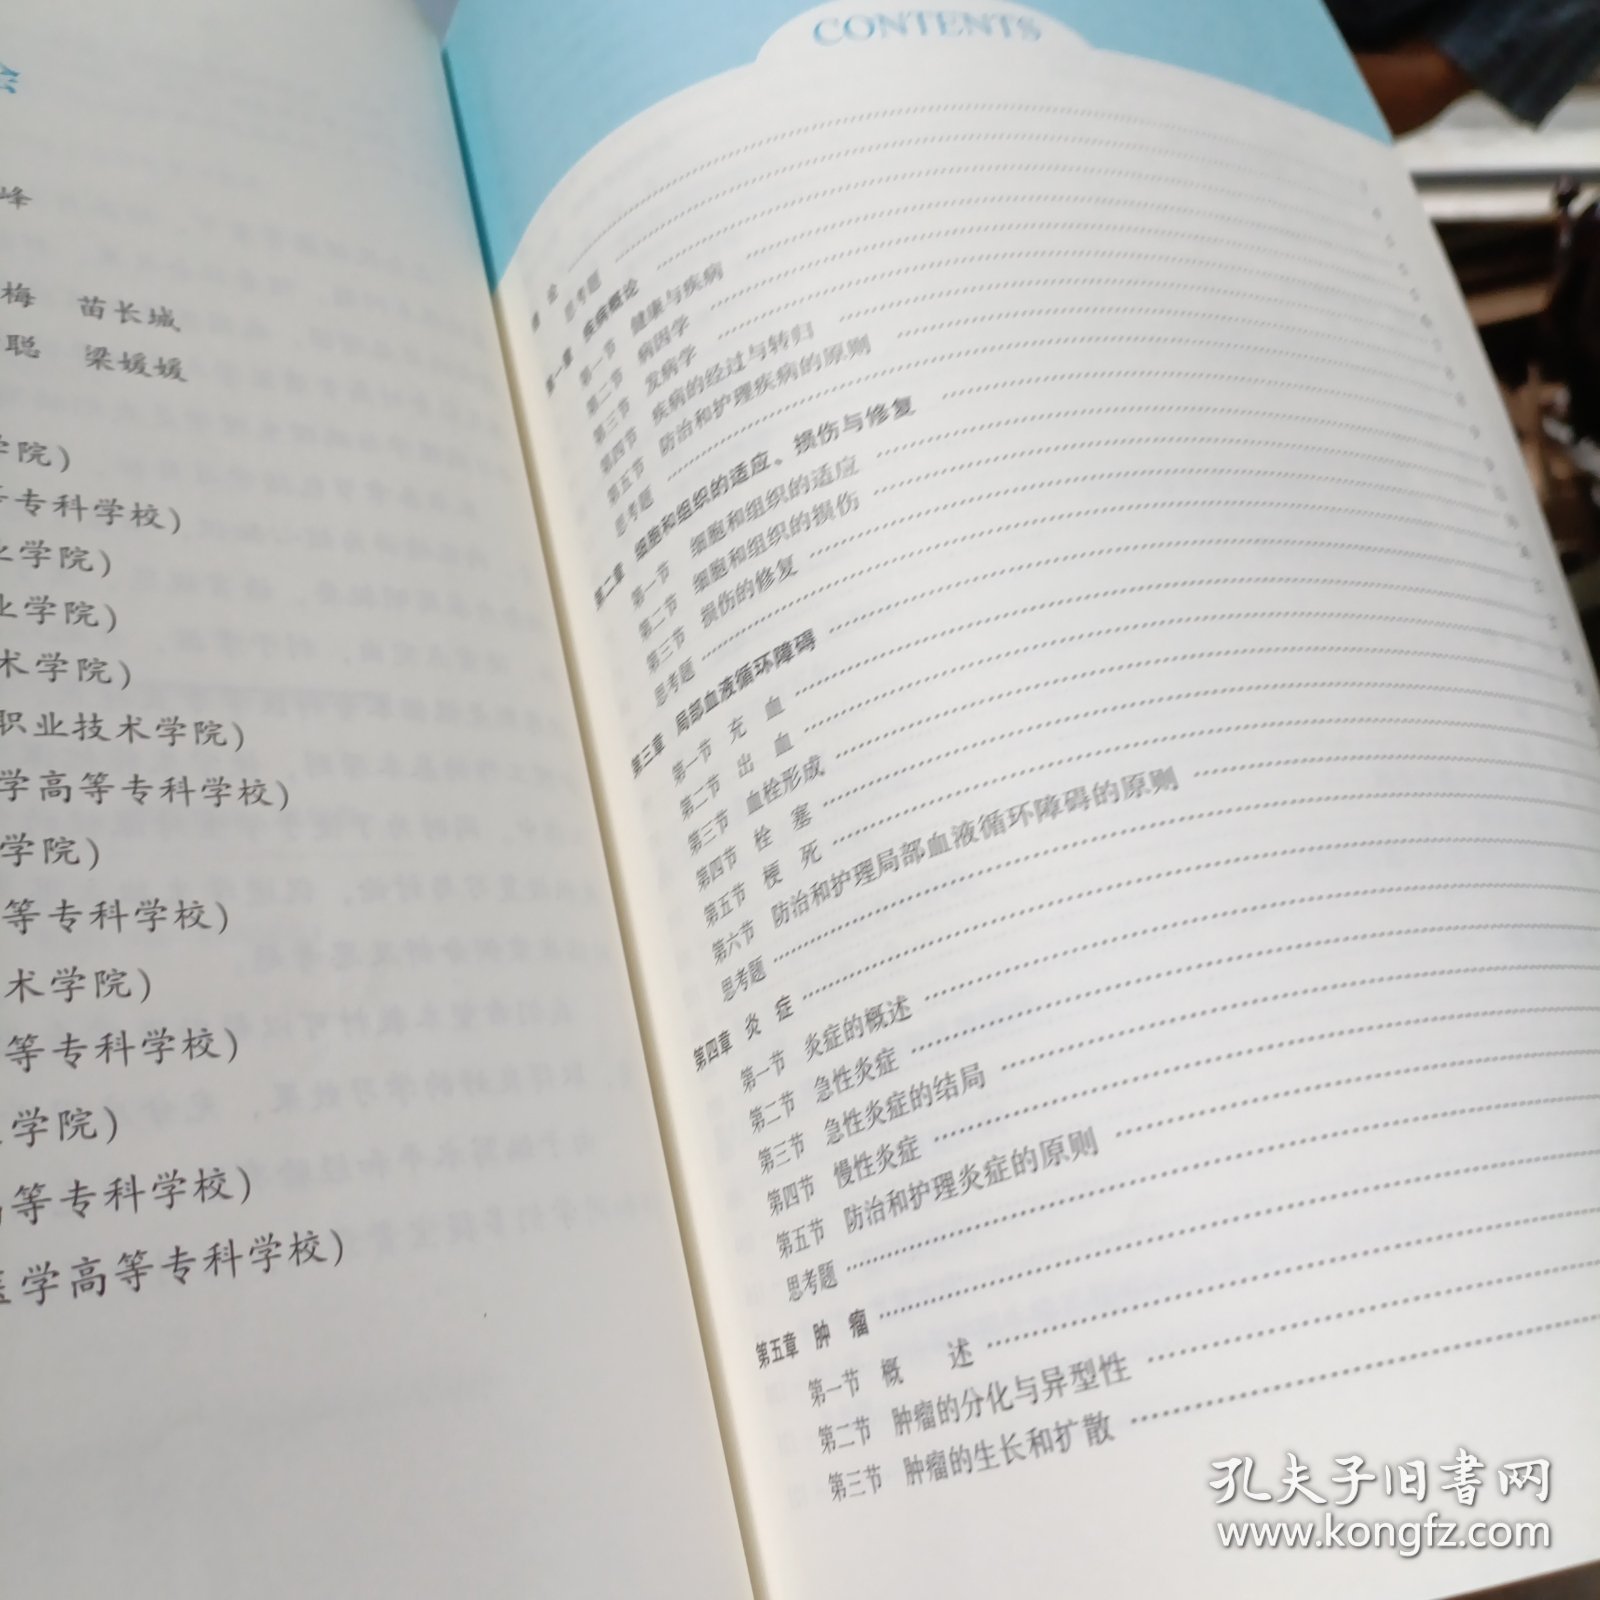 会
峰
梅 苗长城
聪 梁媛媛
学院)
等专科学校)
业学院)
业学院)
术学院)
职业技术学院)
学高等专科学校)
学院)
等专科学校)
术学院)
等专科学校)
学院)
高等专科学校)
医学高等专科学校)
CONTENTS
绪 论
思考题
第一章 疾病概论
第一节 健康与疾病
第二节 病因学
第三节 发病学
第四节 疾病的经过与转归
第五节 防治和护理疾病的原则
思考题
第二章 细胞和组织的适应、损伤与修复
第一节 细胞和组织的适应
第二节 细胞和组织的损伤
第三节 损伤的修复
思考题
第三章 局部血液循环障碍
第一节 充 血
第二节 出 血
第三节 血栓形成
第四节 栓 塞
第五节 梗 死
第六节 防治和护理局部血液循环障碍的原则
思考题
第四章 炎 症
第一节 炎症的概述
第二节 急性炎症
第三节 急性炎症的结局
第四节 慢性炎症
第五节 防治和护理炎症的原则
思考题
第五章 肿 瘤
第一节 概 述
第二节 肿瘤的分化与异型性
第三节 肿瘤的生长和扩散
孔夫子旧书网
www.kongfz.com